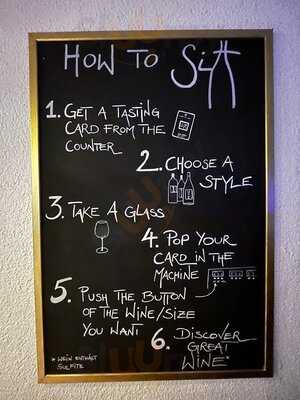 HOW TO Sitt
1. GET A TASTING
CARD FROM THE
COUNTER
2. CHOOSE A
STYLE
3. TAKE A GLASS
4. POP YOUR
CARD IN THE
MACHINE
5. PUSH THE BUTTON
OF THE WINE/SIZE
YOU WANT
6. DISCOVER
GREAT
WINE*
* WEIN ENTHÄLT
SULFITE